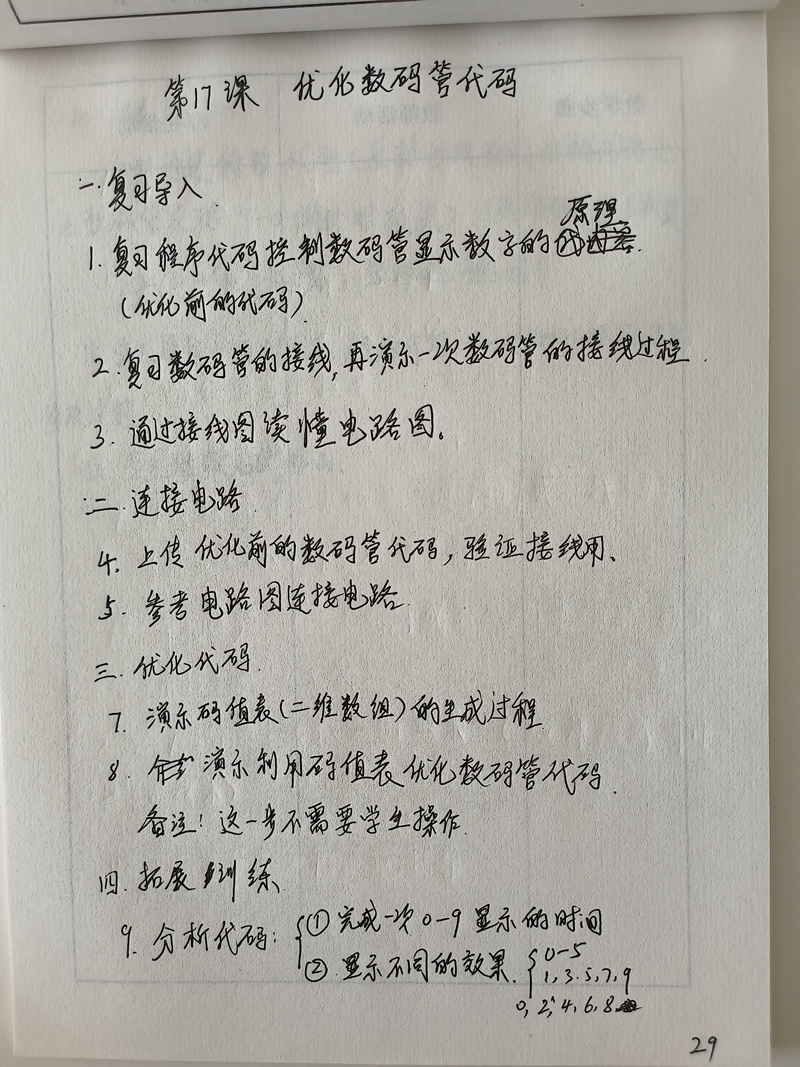 第17课 优化数码管代码
一.复习导入.
原理
1.复习程序代码控制数码管显示数字的
(优化前的代码)
2.复习数码管的接线,再演示一次数码管的接线过程.
3.通过接线图读懂电路图。
二.连接电路
4.上传优化前的数码管代码,验证接线用、
5.参考电路图连接电路.
三.优化代码.
7.演示码值表(二维数组)的生成过程
8.演示利用码值表优化数码管代码.
备注!这一步不需要学生操作.
四.拓展训练
9.分析代码:①完成一次0-9显示的时间
②显示不同的效果.0-5
1,3.5,7,9
0,2,4,6,8
29